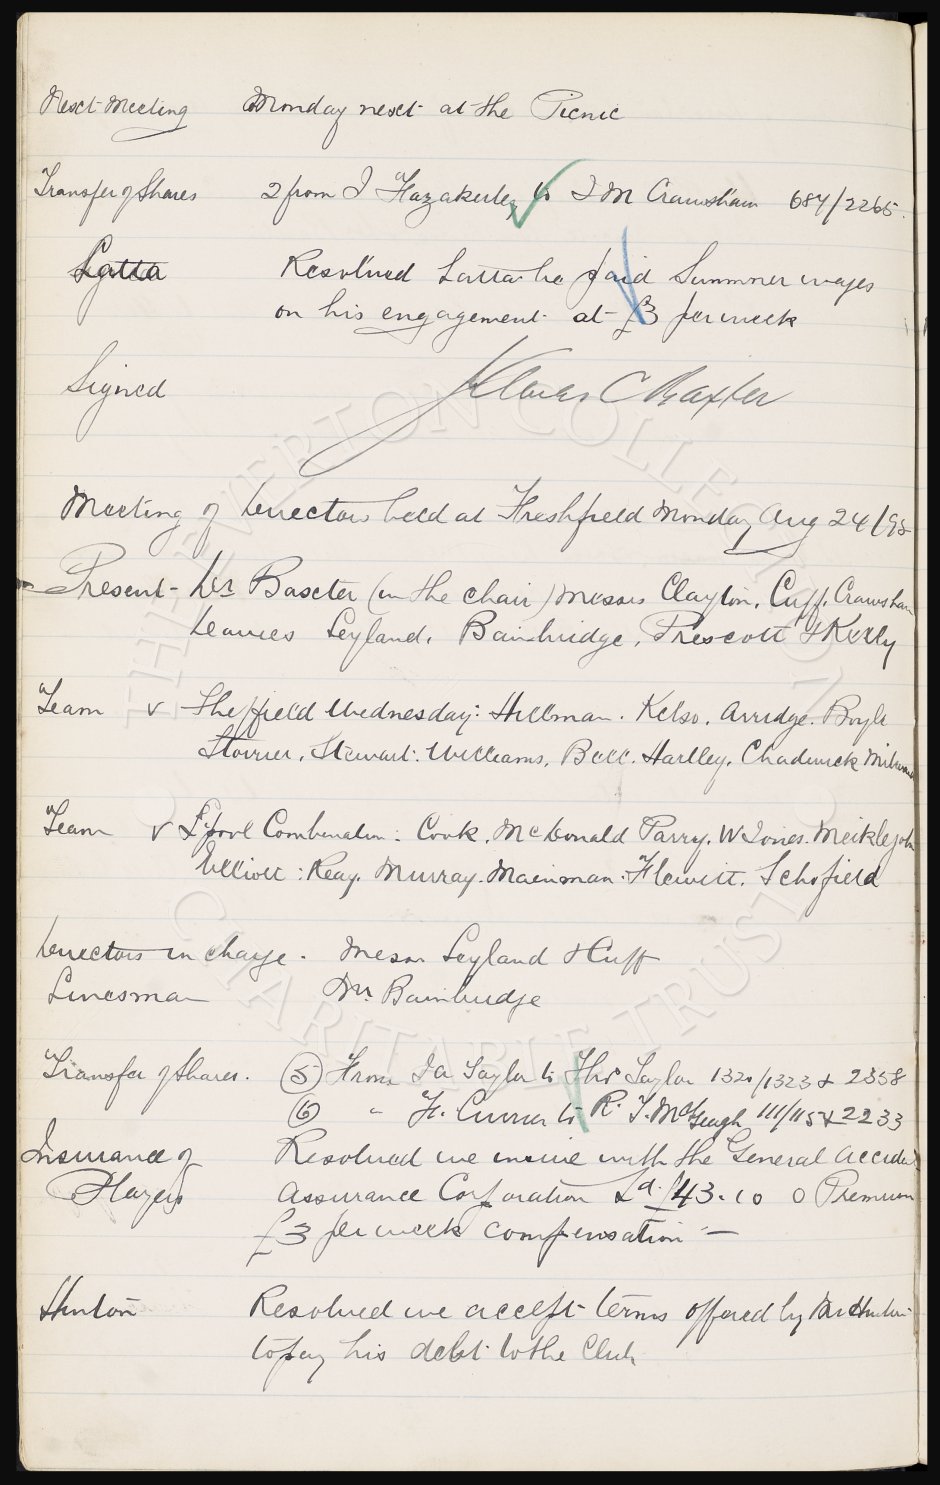 Next Meeting Monday next at the Picnic
Transfer of Shares 2 from J Hazakerley to J M Crawshaw 687/2265.
Latta Resolved Latta be paid Summer wages
on his engagement at £3 per week
Signed James C Baxter
Meeting of Directors held at Freshfield Monday Aug 24/98
Present - Dr Baxter (in the chair) Messrs Clayton, Cuff, Crawshaw
Davies Leyland, Bainbridge, Prescott & Kelly
Team v Sheffield Wednesday: Hillman. Kelso. Arridge. Boyle
Storrier. Stewart: Williams, Bell. Hartley, Chadwick
Team v L'pool Combination: Cook, McDonald Parry. W Jones. Meiklejohn
Elliott: Reay. Murray. Mainman. Flewitt. Schofield
Directors in charge. Messrs Leyland & Cuff
Linesman Mr. Bainbridge
Transfer of Shares. (5) From Taylor to Thos Taylor 1320/1323 & 2358
(6) " F. Currier to R. T. McGeagh 111/115 & 2233
Insurance of Resolved we insure with the General Accident
Players Assurance Corporation Ld. £143.10 0 Premium
£3 per week compensation —
Hinton Resolved we accept terms offered by Mr Hinton
to pay his debt to the Club
THE EVERTON COLLECTION
CHARITABLE TRUST